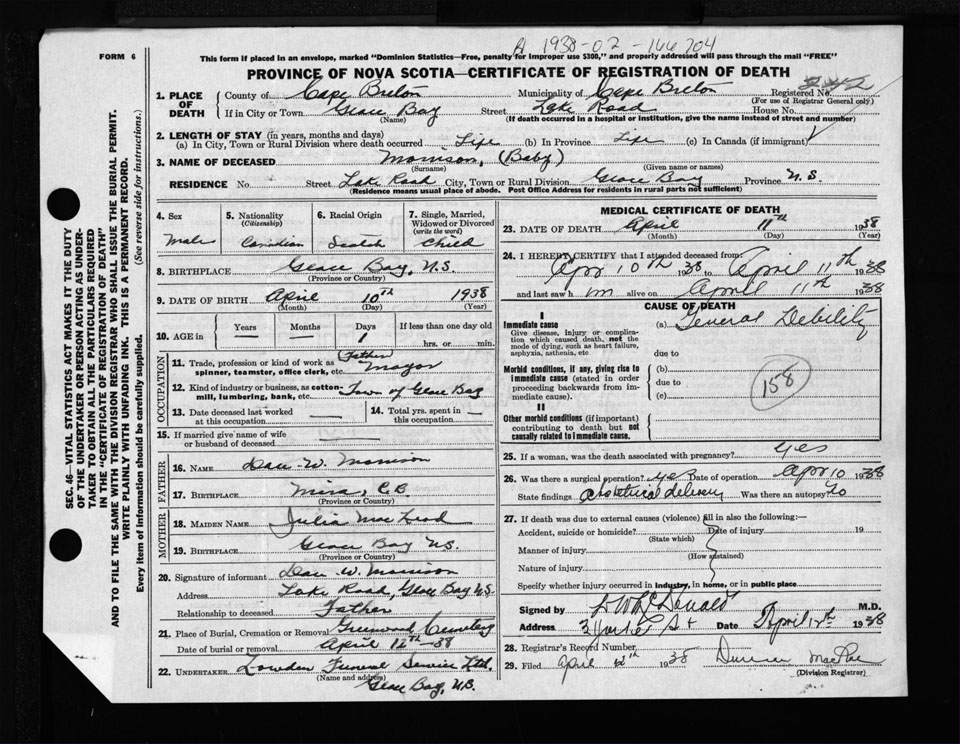 A 1938-02-166704
FORM 6
This form if placed in an envelope, marked "Dominion Statistics—Free, penalty for improper use $300," and properly addressed will pass through the mail "FREE"
PROVINCE OF NOVA SCOTIA—CERTIFICATE OF REGISTRATION OF DEATH
1. PLACE OF DEATH
County of Cape Breton Municipality of Cape Breton Registered No.
(For use of Registrar General only)
If in City or Town Glace Bay Street Lake Road House No.
(Name) (If death occurred in a hospital or institution, give the name instead of street and number)
2. LENGTH OF STAY (in years, months and days)
(a) In City, Town or Rural Division where death occurred Life (b) In Province Life (c) In Canada (if immigrant)
3. NAME OF DECEASED Morrison, (Baby)
(Surname) (Given name or names)
RESIDENCE No. Street Lake Road City, Town or Rural Division Glace Bay Province N.S.
(Residence means usual place of abode. Post Office Address for residents in rural parts not sufficient)
4. Sex
Male
5. Nationality
(Citizenship)
Canadian
6. Racial Origin
Scotch
7. Single, Married, Widowed or Divorced
(write the word)
Child
8. BIRTHPLACE Glace Bay, N.S.
(Province or Country)
9. DATE OF BIRTH April 10th 1938
(Month) (Day) (Year)
10. AGE in
Years Months Days If less than one day old
— — 1 hrs. or min.
OCCUPATION
11. Trade, profession or kind of work as spinner, teamster, office clerk, etc. (Father) Mayor
12. Kind of industry or business, as cotton-mill, lumbering, bank, etc. Town of Glace Bay
13. Date deceased last worked at this occupation —
14. Total yrs. spent in this occupation —
15. If married give name of wife or husband of deceased —
FATHER
16. NAME Dan W. Morrison
17. BIRTHPLACE Mira, C.B.
(Province or Country)
MOTHER
18. MAIDEN NAME Julia MacLeod
19. BIRTHPLACE Glace Bay N.S.
(Province or Country)
20. Signature of informant Dan W. Morrison
Address Lake Road, Glace Bay N.S.
Relationship to deceased Father
21. Place of Burial, Cremation or Removal Greenwood Cemetery
Date of burial or removal April 12th -38
22. UNDERTAKER Lowden Funeral Service Ltd.
(Name and address)
Glace Bay, N.S.
MEDICAL CERTIFICATE OF DEATH
23. DATE OF DEATH April 11th 1938
(Month) (Day) (Year)
24. I HEREBY CERTIFY that I attended deceased from:
Apr 10th 1938 to April 11th 1938
and last saw h im alive on April 11th 1938
CAUSE OF DEATH
I
Immediate cause
Give disease, injury or complication which caused death, not the mode of dying, such as heart failure, asphyxia, asthenia, etc
(a) General Debility
due to
Morbid conditions, if any, giving rise to immediate cause (stated in order proceeding backwards from immediate cause).
(b)
due to
(c)
158
II
Other morbid conditions (if important) contributing to death but not causally related to immediate cause.
25. If a woman, was the death associated with pregnancy? yes
26. Was there a surgical operation? yes Date of operation Apr 10 1938
State findings obstetrical delivery Was there an autopsy? No
27. If death was due to external causes (violence) fill in also the following:—
Accident, suicide or homicide? Date of injury 19
(State which)
Manner of injury
(How sustained)
Nature of injury
Specify whether injury occurred in industry, in home, or in public place
Signed by McDonald M.D.
Address St Date April 12th 1938
28. Registrar's Record Number
29. Filed April 12th 1938 Duncan MacRae
(Division Registrar)
SEC. 46—VITAL STATISTICS ACT MAKES IT THE DUTY
OF THE UNDERTAKER OR PERSON ACTING AS UNDER-
TAKER TO OBTAIN ALL THE PARTICULARS REQUIRED
IN THE "CERTIFICATE OF REGISTRATION OF DEATH"
AND TO FILE THE SAME WITH THE DIVISION REGISTRAR WHO SHALL ISSUE THE BURIAL PERMIT.
WRITE PLAINLY WITH UNFADING INK. THIS IS A PERMANENT RECORD.
Every item of information should be carefully supplied. (See reverse side for instructions.)